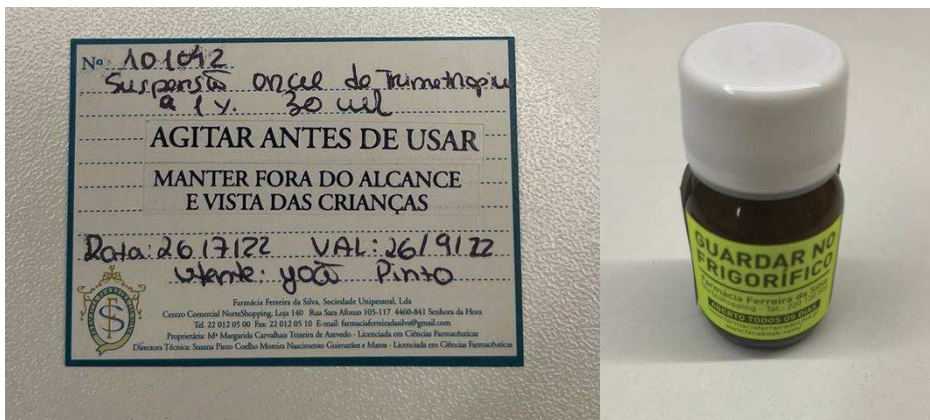 Nº 101042
Suspensão oral de Trimetropim
a 1%. 30 ml
AGITAR ANTES DE USAR
MANTER FORA DO ALCANCE
E VISTA DAS CRIANÇAS
Data: 26/7/22 VAL: 26/9/22
Utente: João Pinto
Farmácia Ferreira da Silva, Sociedade Unipessoal, Lda
Centro Comercial NorteShopping, Loja 140 Rua Sara Afonso 105-117 4460-841 Senhora da Hora
Tel. 22 012 05 00 Fax: 22 012 05 10 E-mail: farmaciaferreiradasilva@gmail.com
Proprietária: Mª Margarida Carvalhais Teixeira de Azevedo - Licenciada em Ciências Farmacêuticas
Directora Técnica: Susana Pinto Coelho Moreira Nascimento Guimarães e Matos - Licenciada em Ciências Farmacêuticas
GUARDAR NO
FRIGORÍFICO
Farmácia Ferreira da Silva
Tel.: 220
ABERTO TODOS OS DIAS
www.facebook.com/